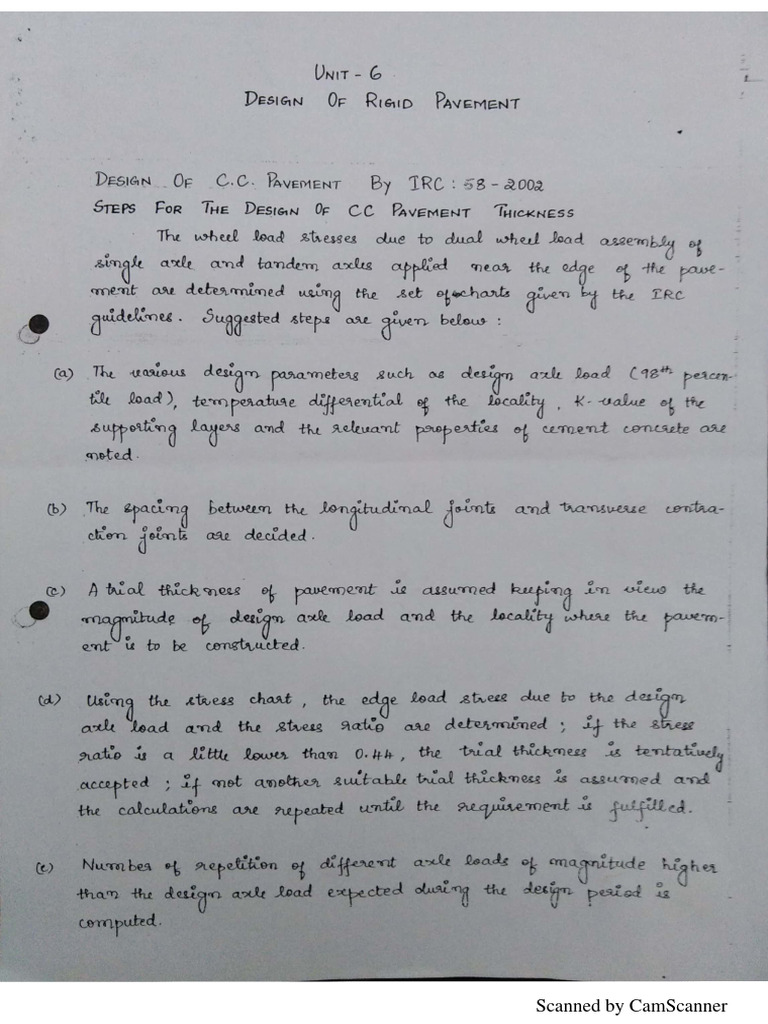 UNIT - 6
DESIGN OF RIGID PAVEMENT
DESIGN OF C.C. PAVEMENT BY IRC : 58 - 2002
STEPS FOR THE DESIGN OF CC PAVEMENT THICKNESS
The wheel load stresses due to dual wheel load assembly of
single axle and tandem axles applied near the edge of the pave-
ment are determined using the set of charts given by the IRC
guidelines. Suggested steps are given below :
(a) The various design parameters such as design axle load (98th percen-
tile load), temperature differential of the locality, K-value of the
supporting layers and the relevant properties of cement concrete are
noted.
(b) The spacing between the longitudinal joints and transverse contra-
ction joints are decided.
(c) A trial thickness of pavement is assumed keeping in view the
magnitude of design axle load and the locality where the pavem-
ent is to be constructed.
(d) Using the stress chart, the edge load stress due to the design
axle load and the stress ratio are determined ; if the stress
ratio is a little lower than 0.44, the trial thickness is tentatively
accepted ; if not another suitable trial thickness is assumed and
the calculations are repeated until the requirement is fulfilled.
(e) Number of repetition of different axle loads of magnitude higher
than the design axle load expected during the design period is
computed.
Scanned by CamScanner